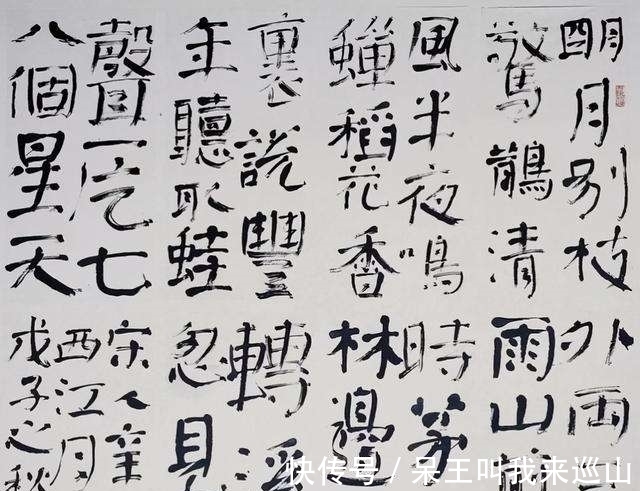 明月别枝
驚鵲清
風半夜鳴
蟬稻花香
裏說豐
年聽取蛙
聲一片七
八個星天
外兩
雨山
時茅
林邊
轉溪
忽見
宋人辛
西江月
戊子之秋
快传号 / 呆王叫我来巡山